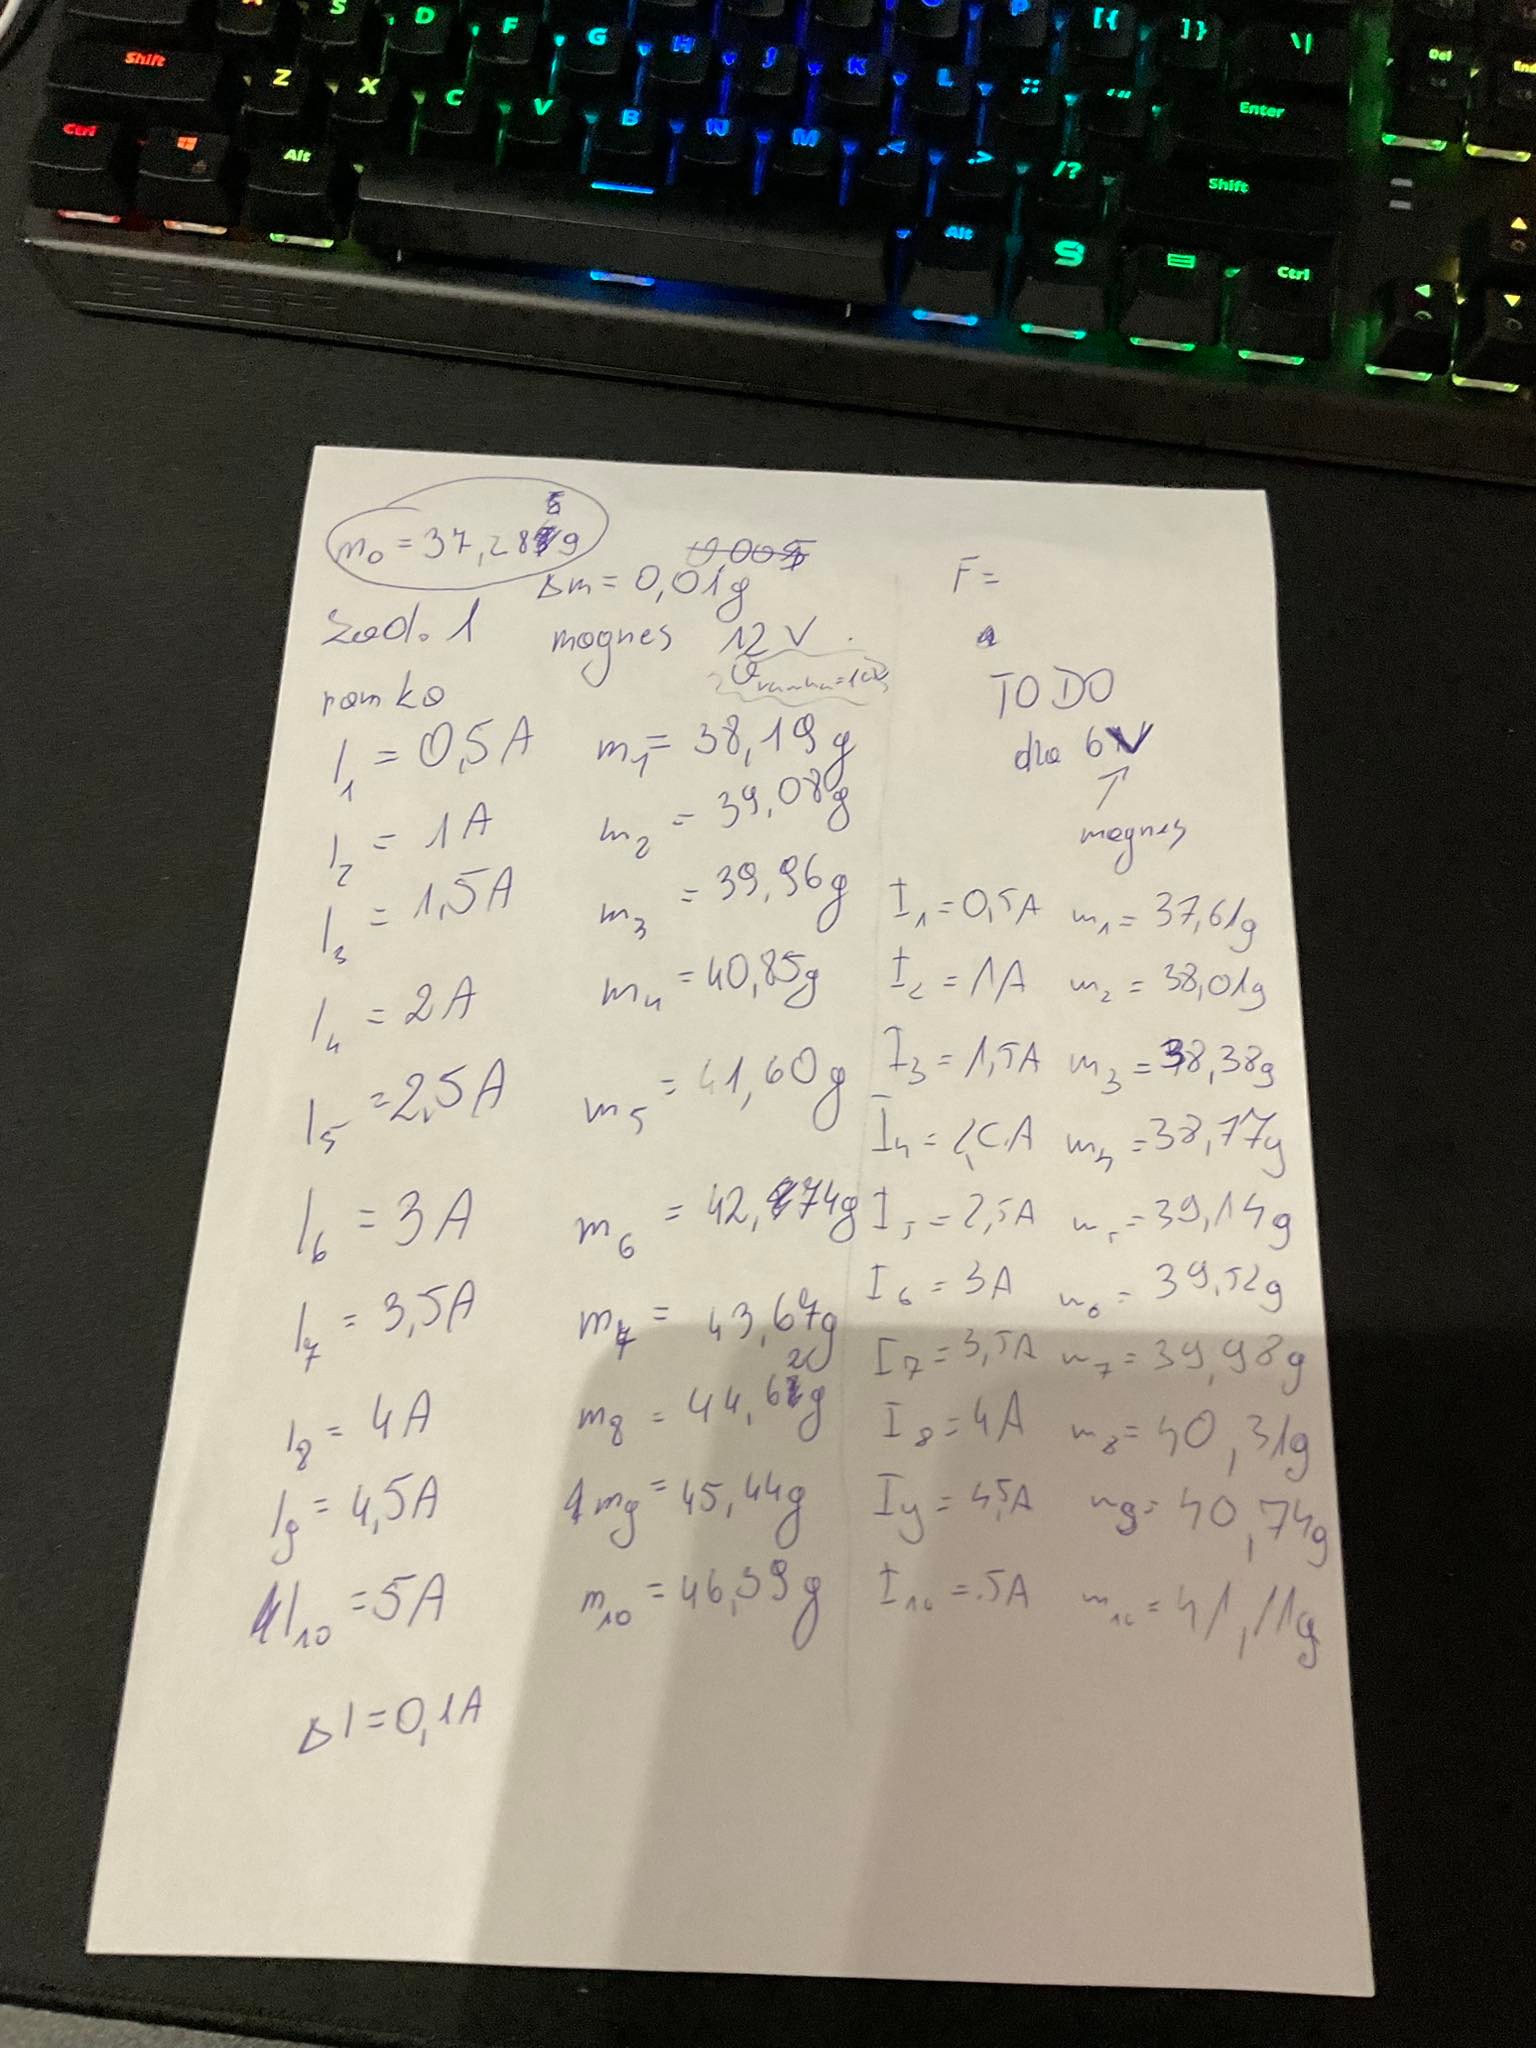 A S D F G H J K L P [{ ]} \| Del End
Shift Z X C V B N M ,< .> /? Enter Shift
Ctrl Alt Alt S Ctrl
m₀ = 37,285g
Δm = 0,01g
zad. 1 magnes 12 V
ramka
I₁ = 0,5A m₁ = 38,19g
I₂ = 1A m₂ = 39,08g
I₃ = 1,5A m₃ = 39,96g
I₄ = 2A m₄ = 40,85g
I₅ = 2,5A m₅ = 41,60g
I₆ = 3A m₆ = 42,74g
I₇ = 3,5A m₇ = 43,67g
I₈ = 4A m₈ = 44,62g
I₉ = 4,5A m₉ = 45,44g
I₁₀ = 5A m₁₀ = 46,39g
ΔI = 0,1A
F =
TODO
dla 6V
magnes
I₁ = 0,5A m₁ = 37,61g
I₂ = 1A m₂ = 38,01g
I₃ = 1,5A m₃ = 38,38g
I₄ = 2,0A m₄ = 38,77g
I₅ = 2,5A m₅ = 39,14g
I₆ = 3A m₆ = 39,52g
I₇ = 3,5A m₇ = 39,98g
I₈ = 4A m₈ = 40,31g
I₉ = 4,5A m₉ = 40,74g
I₁₀ = 5A m₁₀ = 41,11g